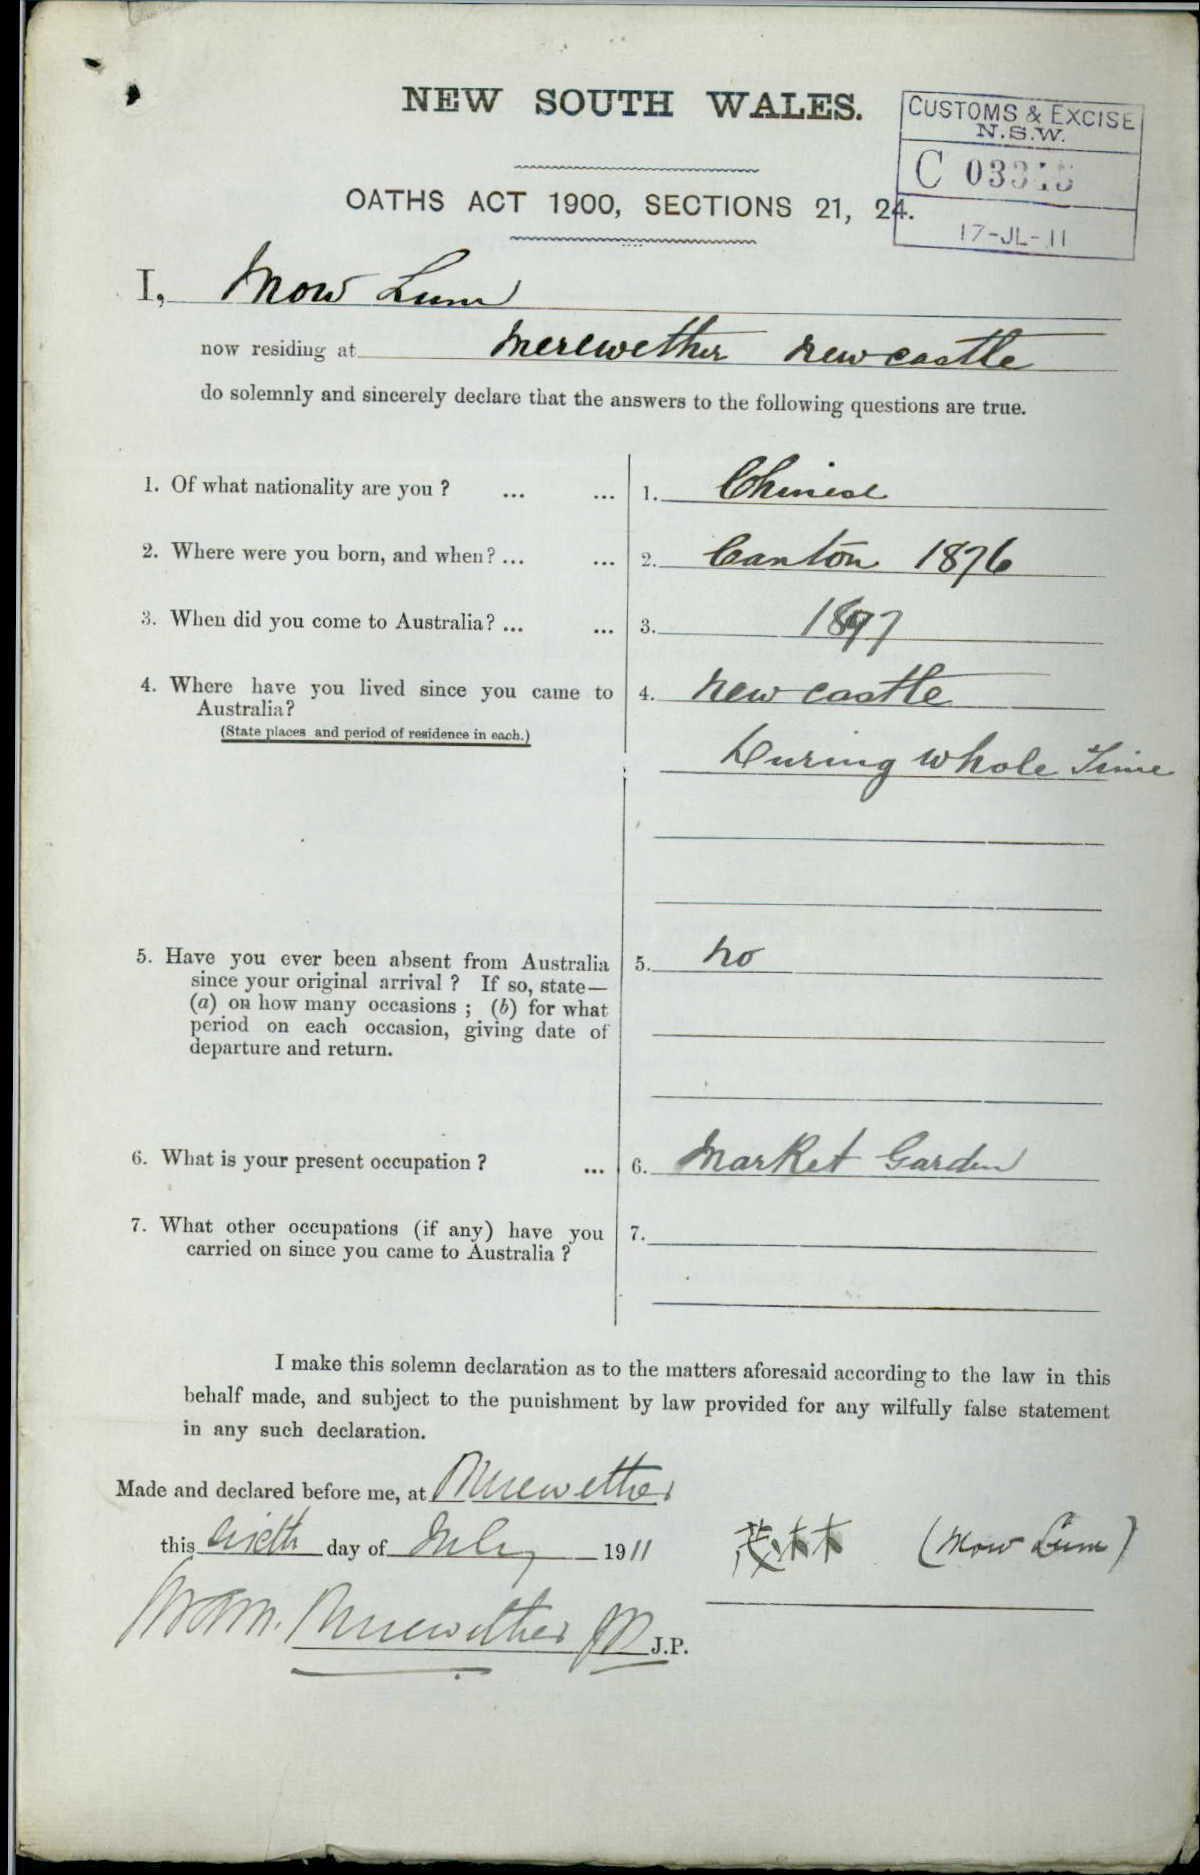 NEW SOUTH WALES.
CUSTOMS & EXCISE
N.S.W.
C 03315
17-JL-11
OATHS ACT 1900, SECTIONS 21, 24.
I, Mow Lum
now residing at Merewether Newcastle
do solemnly and sincerely declare that the answers to the following questions are true.
1. Of what nationality are you ? ... ... 1. Chinese
2. Where were you born, and when? ... ... 2. Canton 1876
3. When did you come to Australia? ... ... 3. 1897
4. Where have you lived since you came to 4. Newcastle
Australia?
(State places and period of residence in each.)
During whole Time
5. Have you ever been absent from Australia 5. No
since your original arrival ? If so, state—
(a) on how many occasions ; (b) for what
period on each occasion, giving date of
departure and return.
6. What is your present occupation ? ... 6. Market Garden
7. What other occupations (if any) have you 7.
carried on since you came to Australia ?
I make this solemn declaration as to the matters aforesaid according to the law in this
behalf made, and subject to the punishment by law provided for any wilfully false statement
in any such declaration.
Made and declared before me, at Merewether
this sixth day of July 1911 茂林 (Mow Lum)
Merewether JP J.P.